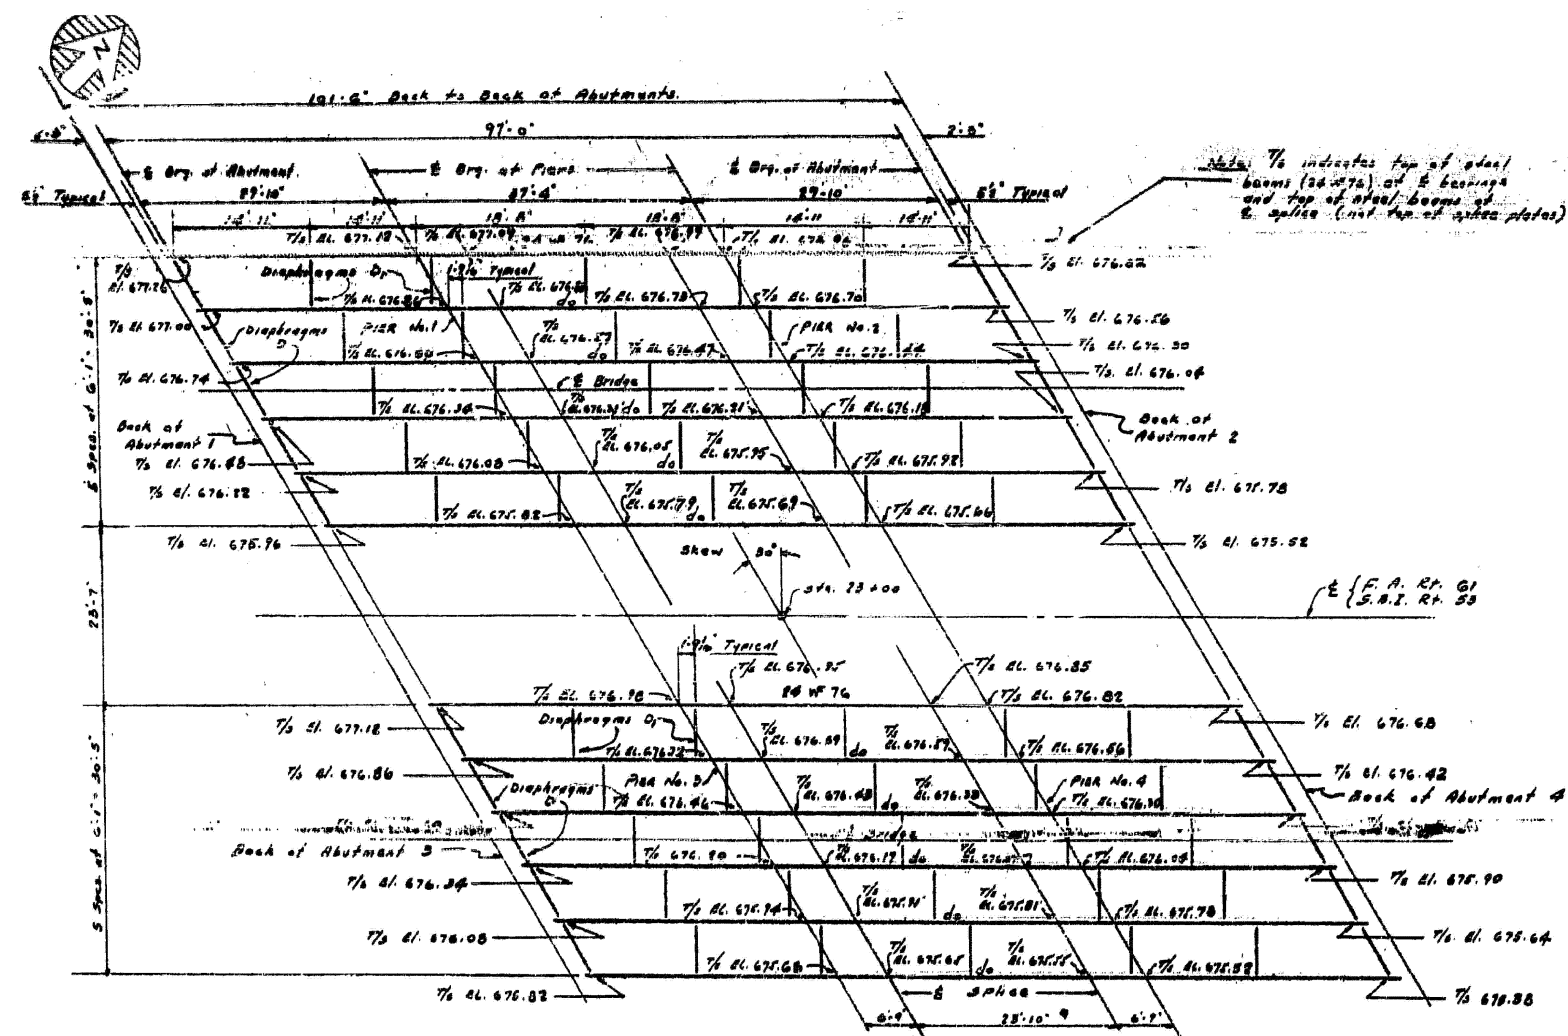 N
101'-6" Back to Back of Abutments.
97'-0"
2'-3"
℄ Brg. of Abutment.
℄ Brg. at Piers
℄ Brg. of Abutment
29'-10"
37'-4"
29'-10"
Typical
5½" Typical
Note: T/s indicates top of steel
beams (24 WF 76) at ℄ bearings
and top of steel beams at
℄ splice (not top of splice plates)
14'-11"
14'-11"
18'-8"
18'-8"
14'-11
14'-11"
T/s El. 677.12
T/s El. 677.09
T/s El. 676.82
T/s
El. 677.26
Diaphragms D₁
Typical
do
T/s EL. 676.73
T/s EL. 676.70
T/s El. 677.00
Diaphragms
PIER No. 1
T/s
EL. 676.57
do
T/s EL. 676.47
PIER No. 2
T/s El. 676.56
T/s El. 676.30
T/s El. 676.74
℄ Bridge
T/s El. 676.04
T/s EL. 676.34
T/s
EL. 676.31
do
T/s EL. 676.21
T/s EL. 676.18
Back of
Abutment 1
Back of
Abutment 2
T/s El. 676.48
T/s EL. 676.08
T/s
EL. 676.05
do
T/s
EL. 675.95
T/s EL. 675.92
T/s El. 676.22
T/s El. 675.78
T/s EL. 675.82
T/s
EL. 675.79
do
T/s
EL. 675.69
T/s EL. 675.66
T/s El. 675.96
T/s El. 675.52
5 Spcs. at 6'-1" = 30'-5"
Skew
30°
Sta. 23+00
℄ { F. A. Rt. 61
S.B.I. Rt. 53
23'-7"
Typical
T/s EL. 676.95
T/s EL. 676.85
T/s EL. 676.98
24 WF 76
T/s EL. 676.82
T/s El. 677.12
Diaphragms D₁
T/s El. 676.68
T/s EL. 676.69
do
T/s EL. 676.59
T/s EL. 676.56
T/s El. 676.86
PIER No. 3
PIER No. 4
T/s El. 676.42
Diaphragms
D
T/s EL. 676.46
T/s
EL. 676.43
do
T/s
EL. 676.33
T/s EL. 676.30
Back of Abutment 4
Bridge
Back of Abutment 3
T/s
EL. 676.17
do
T/s EL. 676.04
T/s El. 676.34
T/s El. 675.90
T/s EL. 675.94
T/s
EL. 675.91
do
T/s
EL. 675.81
T/s EL. 675.78
T/s El. 676.08
T/s El. 675.64
T/s EL. 675.68
T/s
EL. 675.65
do
T/s
EL. 675.55
T/s EL. 675.52
T/s EL. 675.82
5 Spcs. at 6'-1" = 30'-5"
℄ Splice
6'-9"
23'-10"
6'-9"